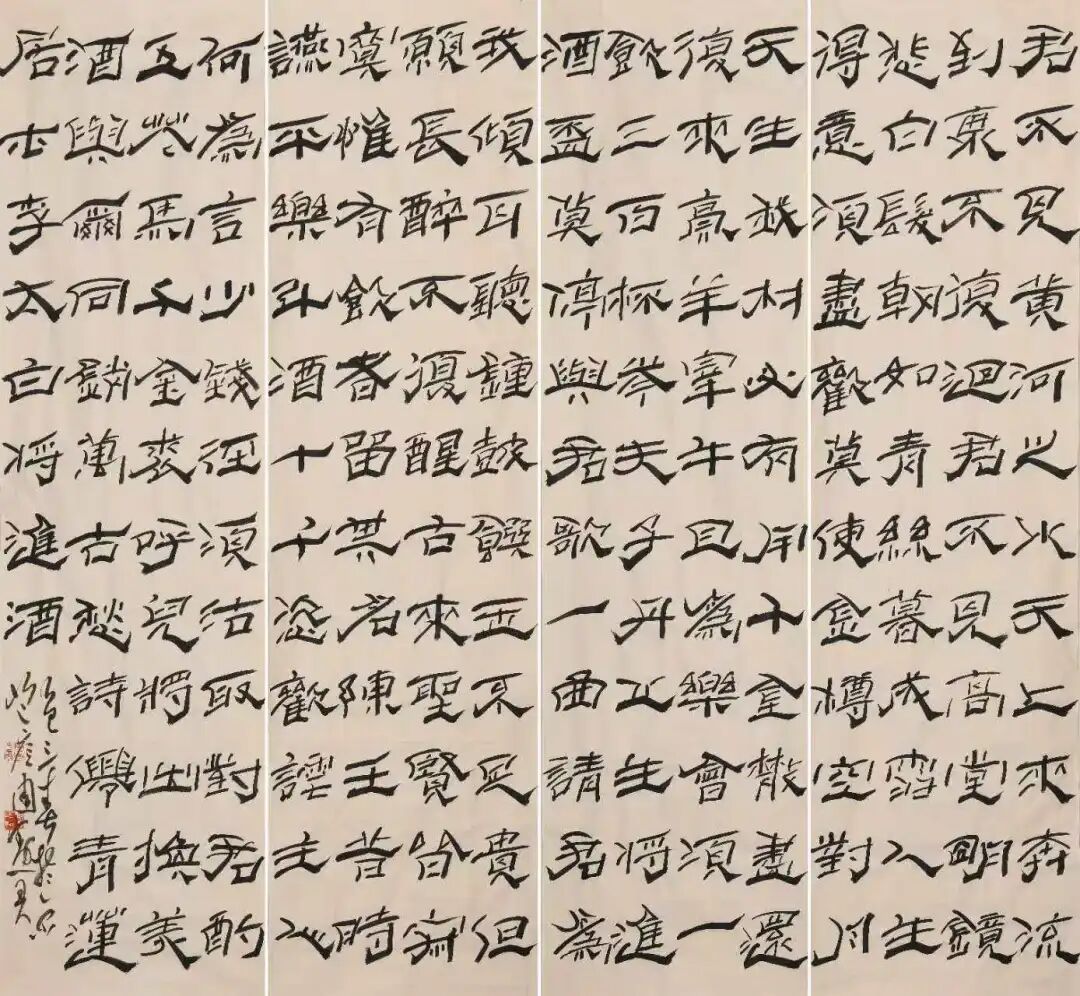 君不見黄河之水天上來奔流
到東不復迴君不見高堂明鏡
悲白髮朝如青絲暮成雪人生
得意須盡歡莫使金樽空對月
天生我材必有用千金散盡還
復來烹羊宰牛且為樂會須一
飲三百杯岑夫子丹丘生將進
酒盃莫停與君歌一曲請君為
我傾耳聽鐘鼓饌玉不足貴但
願長醉不復醒古來聖賢皆寂
寞惟有飲者留其名陳王昔時
讌平樂斗酒十千恣歡謔主人
何為言少錢徑須沽取對君酌
五花馬千金裘呼兒將出換美
酒與爾同銷萬古愁詩僊青蓮
居士李太白將進酒